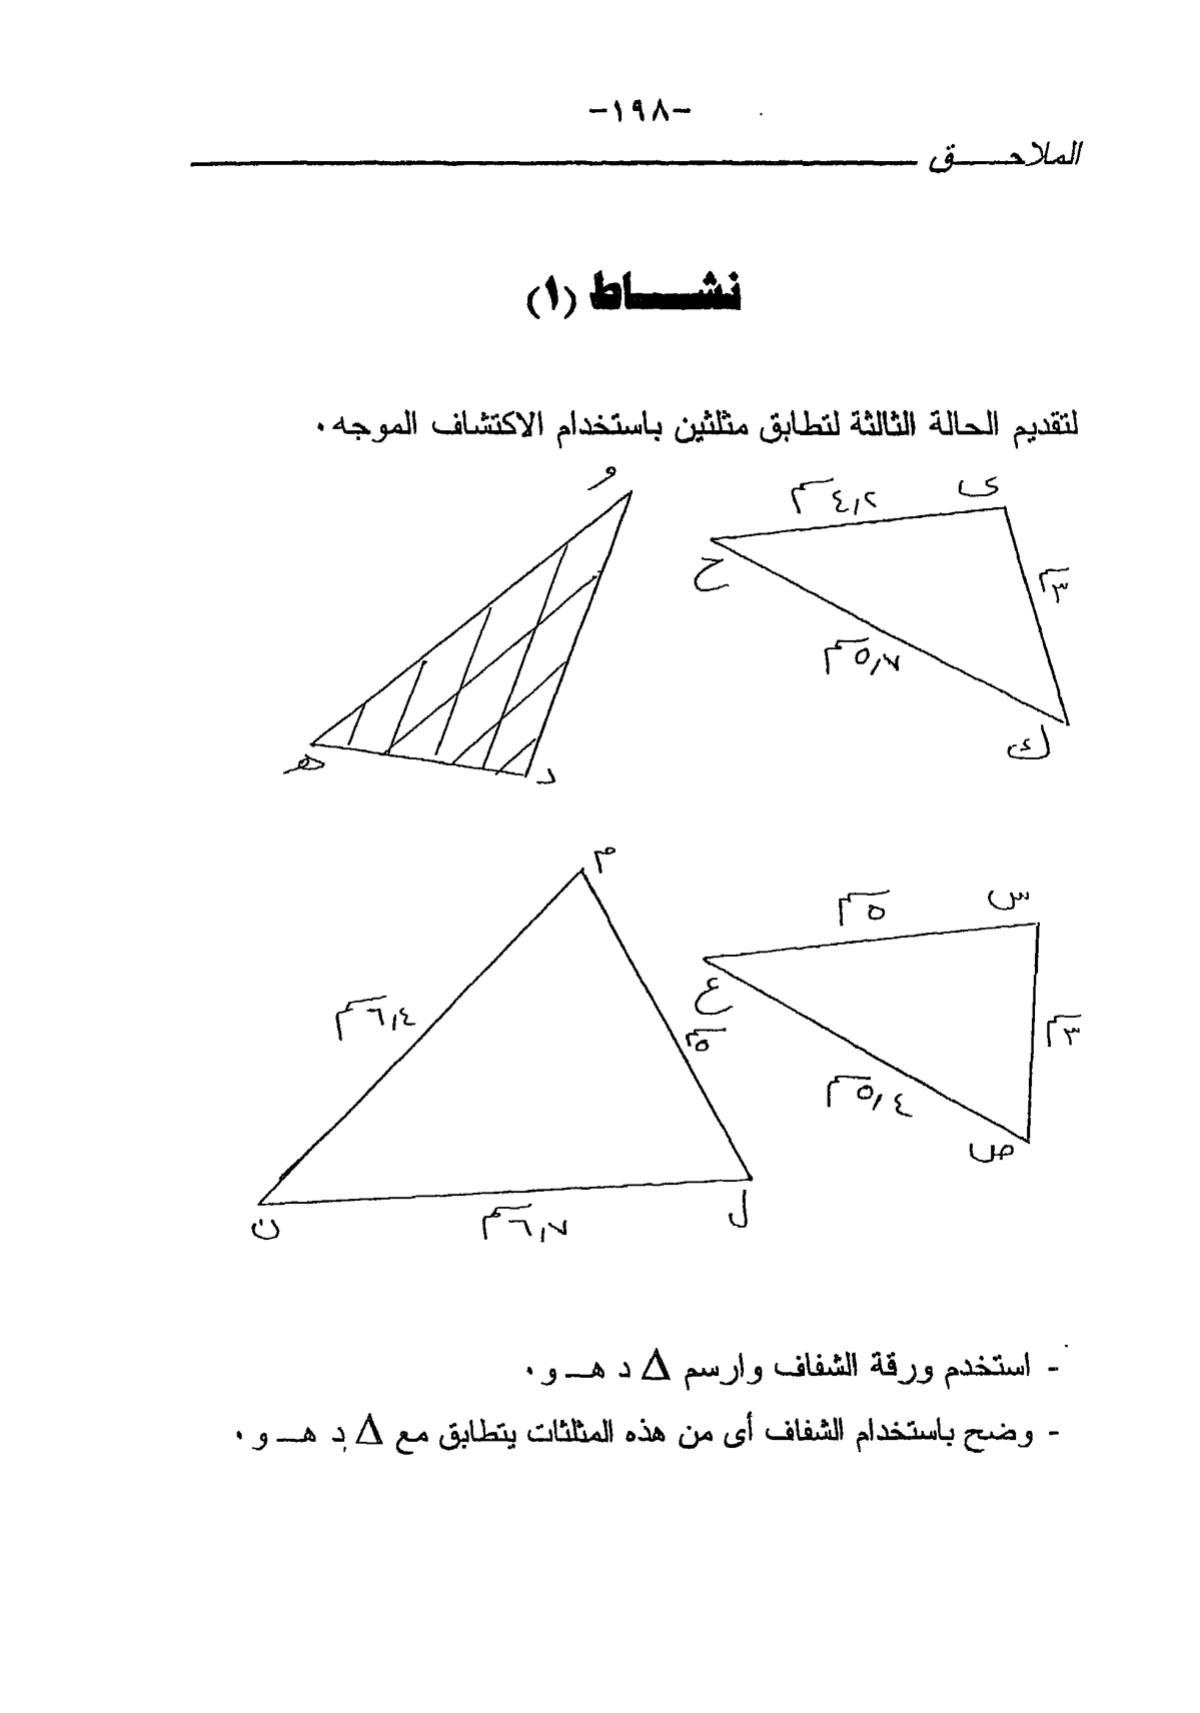 -١٩٨-
الملاحـــق
نشـــاط (١)
لتقديم الحالة الثالثة لتطابق مثلثين باستخدام الاكتشاف الموجه ٠
و
ى
٤,٢ سم
ح
٣ سم
٥,٧ سم
ك
هـ
د
م
س
٥ سم
ع
٦,٤ سم
٥ سم
٣ سم
٥,٤ سم
ص
ن
٦,٧ سم
ل
- استخدم ورقة الشفاف وارسم Δ د هـ و ٠
- وضح باستخدام الشفاف أى من هذه المثلثات يتطابق مع Δ د هـ و ٠